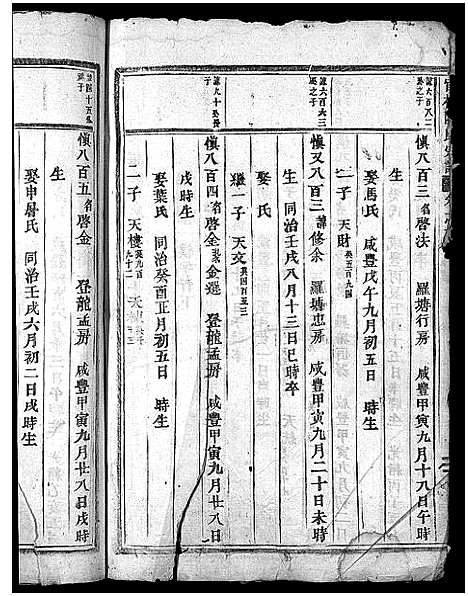 慎八百三 名啓法 羅塘行房 咸豐甲寅九月十八日午時
生
娶馬氏 咸豐戊午九月初五日 時生
二子 天財
慎又八百三 諱修余 羅塘忠房 咸豐甲寅九月二十日未時
生 同治壬戌八月十三日巳時卒
娶 氏
繼一子 天文
慎八百四 名啓金 金選 登龍孟房 咸豐甲寅九月廿八日
戌時生
娶葉氏 同治癸酉正月初五日 時生
二子 天樓 天
慎八百五 名啓金 登龍孟房 咸豐甲寅九月廿八日戌時
生
娶申屠氏 同治壬戌六月初二日戌時生